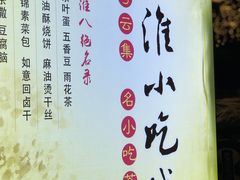 淮小吃
云集 名小吃荟
淮八绝名录
叶蛋 五香豆 雨花茶
油酥烧饼 麻油烫干丝
锦素菜包 如意回卤干
豆腐脑